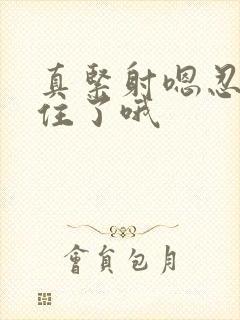 真緊射嗯忍
住了哦
會員包月